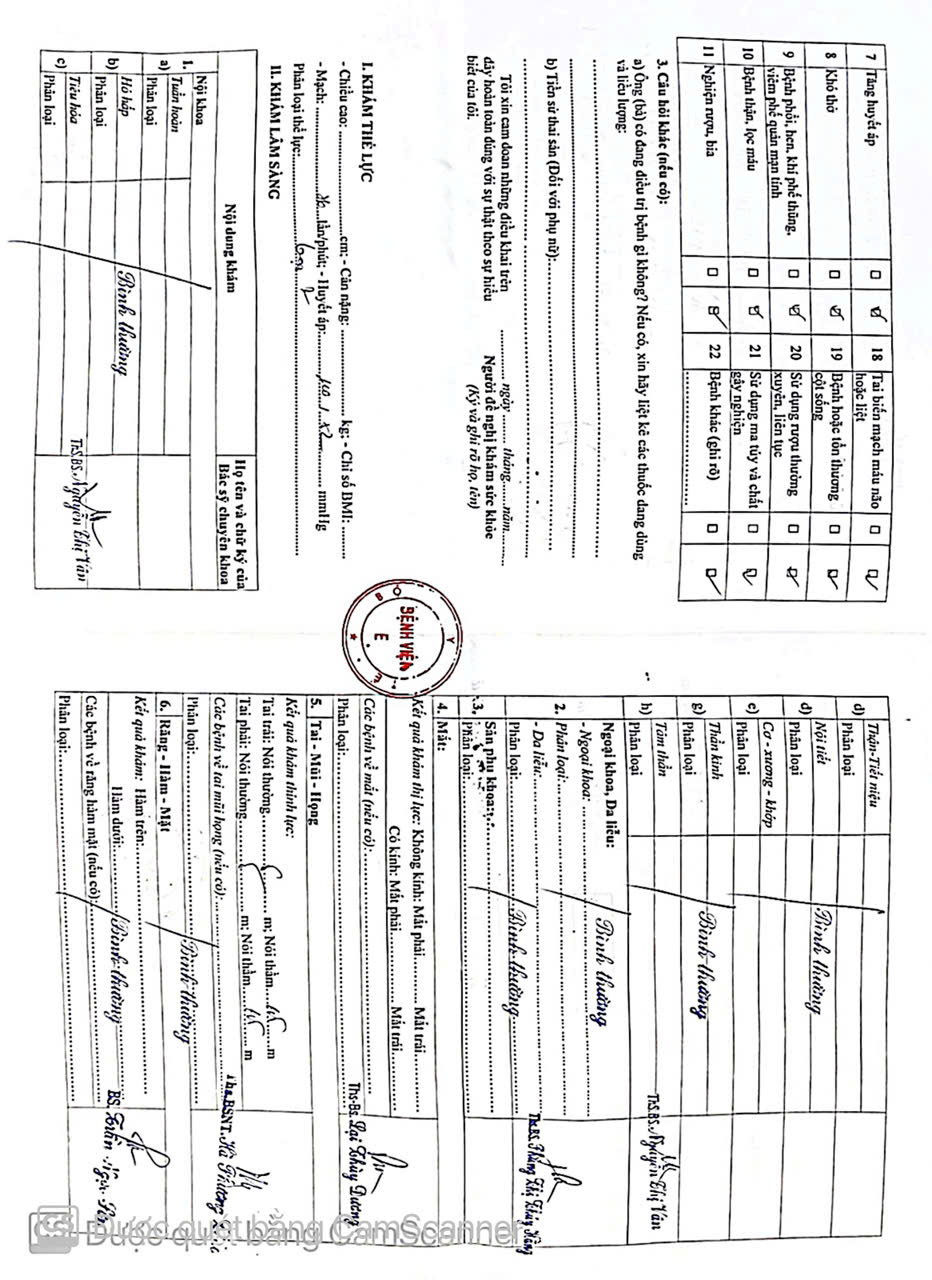 7 Tăng huyết áp ☐ ☑ 18 Tai biến mạch máu não hoặc liệt ☐ ☑
8 Khó thở ☐ ☑ 19 Bệnh hoặc tổn thương cột sống ☐ ☑
9 Bệnh phổi, hen, khí phế thũng, viêm phế quản mạn tính ☐ ☑ 20 Sử dụng rượu thường xuyên, liên tục ☐ ☑
10 Bệnh thận, lọc máu ☐ ☑ 21 Sử dụng ma túy và chất gây nghiện ☐ ☑
11 Nghiện rượu, bia ☐ ☑ 22 Bệnh khác (ghi rõ) ☐ ☑
3. Câu hỏi khác (nếu có):
a) Ông (bà) có đang điều trị bệnh gì không? Nếu có, xin hãy liệt kê các thuốc đang dùng
và liều lượng:
b) Tiền sử thai sản (Đối với phụ nữ):
Tôi xin cam đoan những điều khai trên
đây hoàn toàn đúng với sự thật theo sự hiểu
biết của tôi.
ngày ........ tháng........năm........
Người đề nghị khám sức khỏe
(Ký và ghi rõ họ, tên)
I. KHÁM THỂ LỰC
- Chiều cao: ........ cm; - Cân nặng: ........ kg; - Chỉ số BMI: ........
- Mạch: ........ lần/phút; - Huyết áp: ........ mmHg
Phân loại thể lực:
II. KHÁM LÂM SÀNG
Nội dung khám
Họ tên và chữ ký của
Bác sỹ chuyên khoa
1. Nội khoa
a) Tuần hoàn
Phân loại
b) Hô hấp
Bình thường
Phân loại
c) Tiêu hóa
Phân loại
ThS.BS. Nguyễn Thị Vân
BỘ Y TẾ
BỆNH VIỆN
E
d) Thận-Tiết niệu
Phân loại
đ) Nội tiết
Bình thường
Phân loại
e) Cơ - xương - khớp
Phân loại
g) Thần kinh
Bình thường
Phân loại
h) Tâm thần
Phân loại
ThS.BS. Nguyễn Thị Vân
Ngoại khoa, Da liễu:
- Ngoại khoa:
Bình thường
2. Phân loại:
- Da liễu:
Phân loại:
Bình thường
3. Sản phụ khoa:
Phân loại:
4. Mắt:
Kết quả khám thị lực: Không kính: Mắt phải........ Mắt trái........
Có kính: Mắt phải........ Mắt trái........
Các bệnh về mắt (nếu có):
Phân loại:
Ths-Bs. Lại Thùy Dương
5. Tai - Mũi - Họng
Kết quả khám thính lực:
Tai trái: Nói thường........ m; Nói thầm........ m
Tai phải: Nói thường........ m; Nói thầm........ m
Các bệnh về tai mũi họng (nếu có):
Phân loại:
Bình thường
6. Răng - Hàm - Mặt
Kết quả khám: Hàm trên:
Hàm dưới:
Các bệnh về răng hàm mặt (nếu có):
Bình thường
Phân loại:
CS Được quét bằng CamScanner